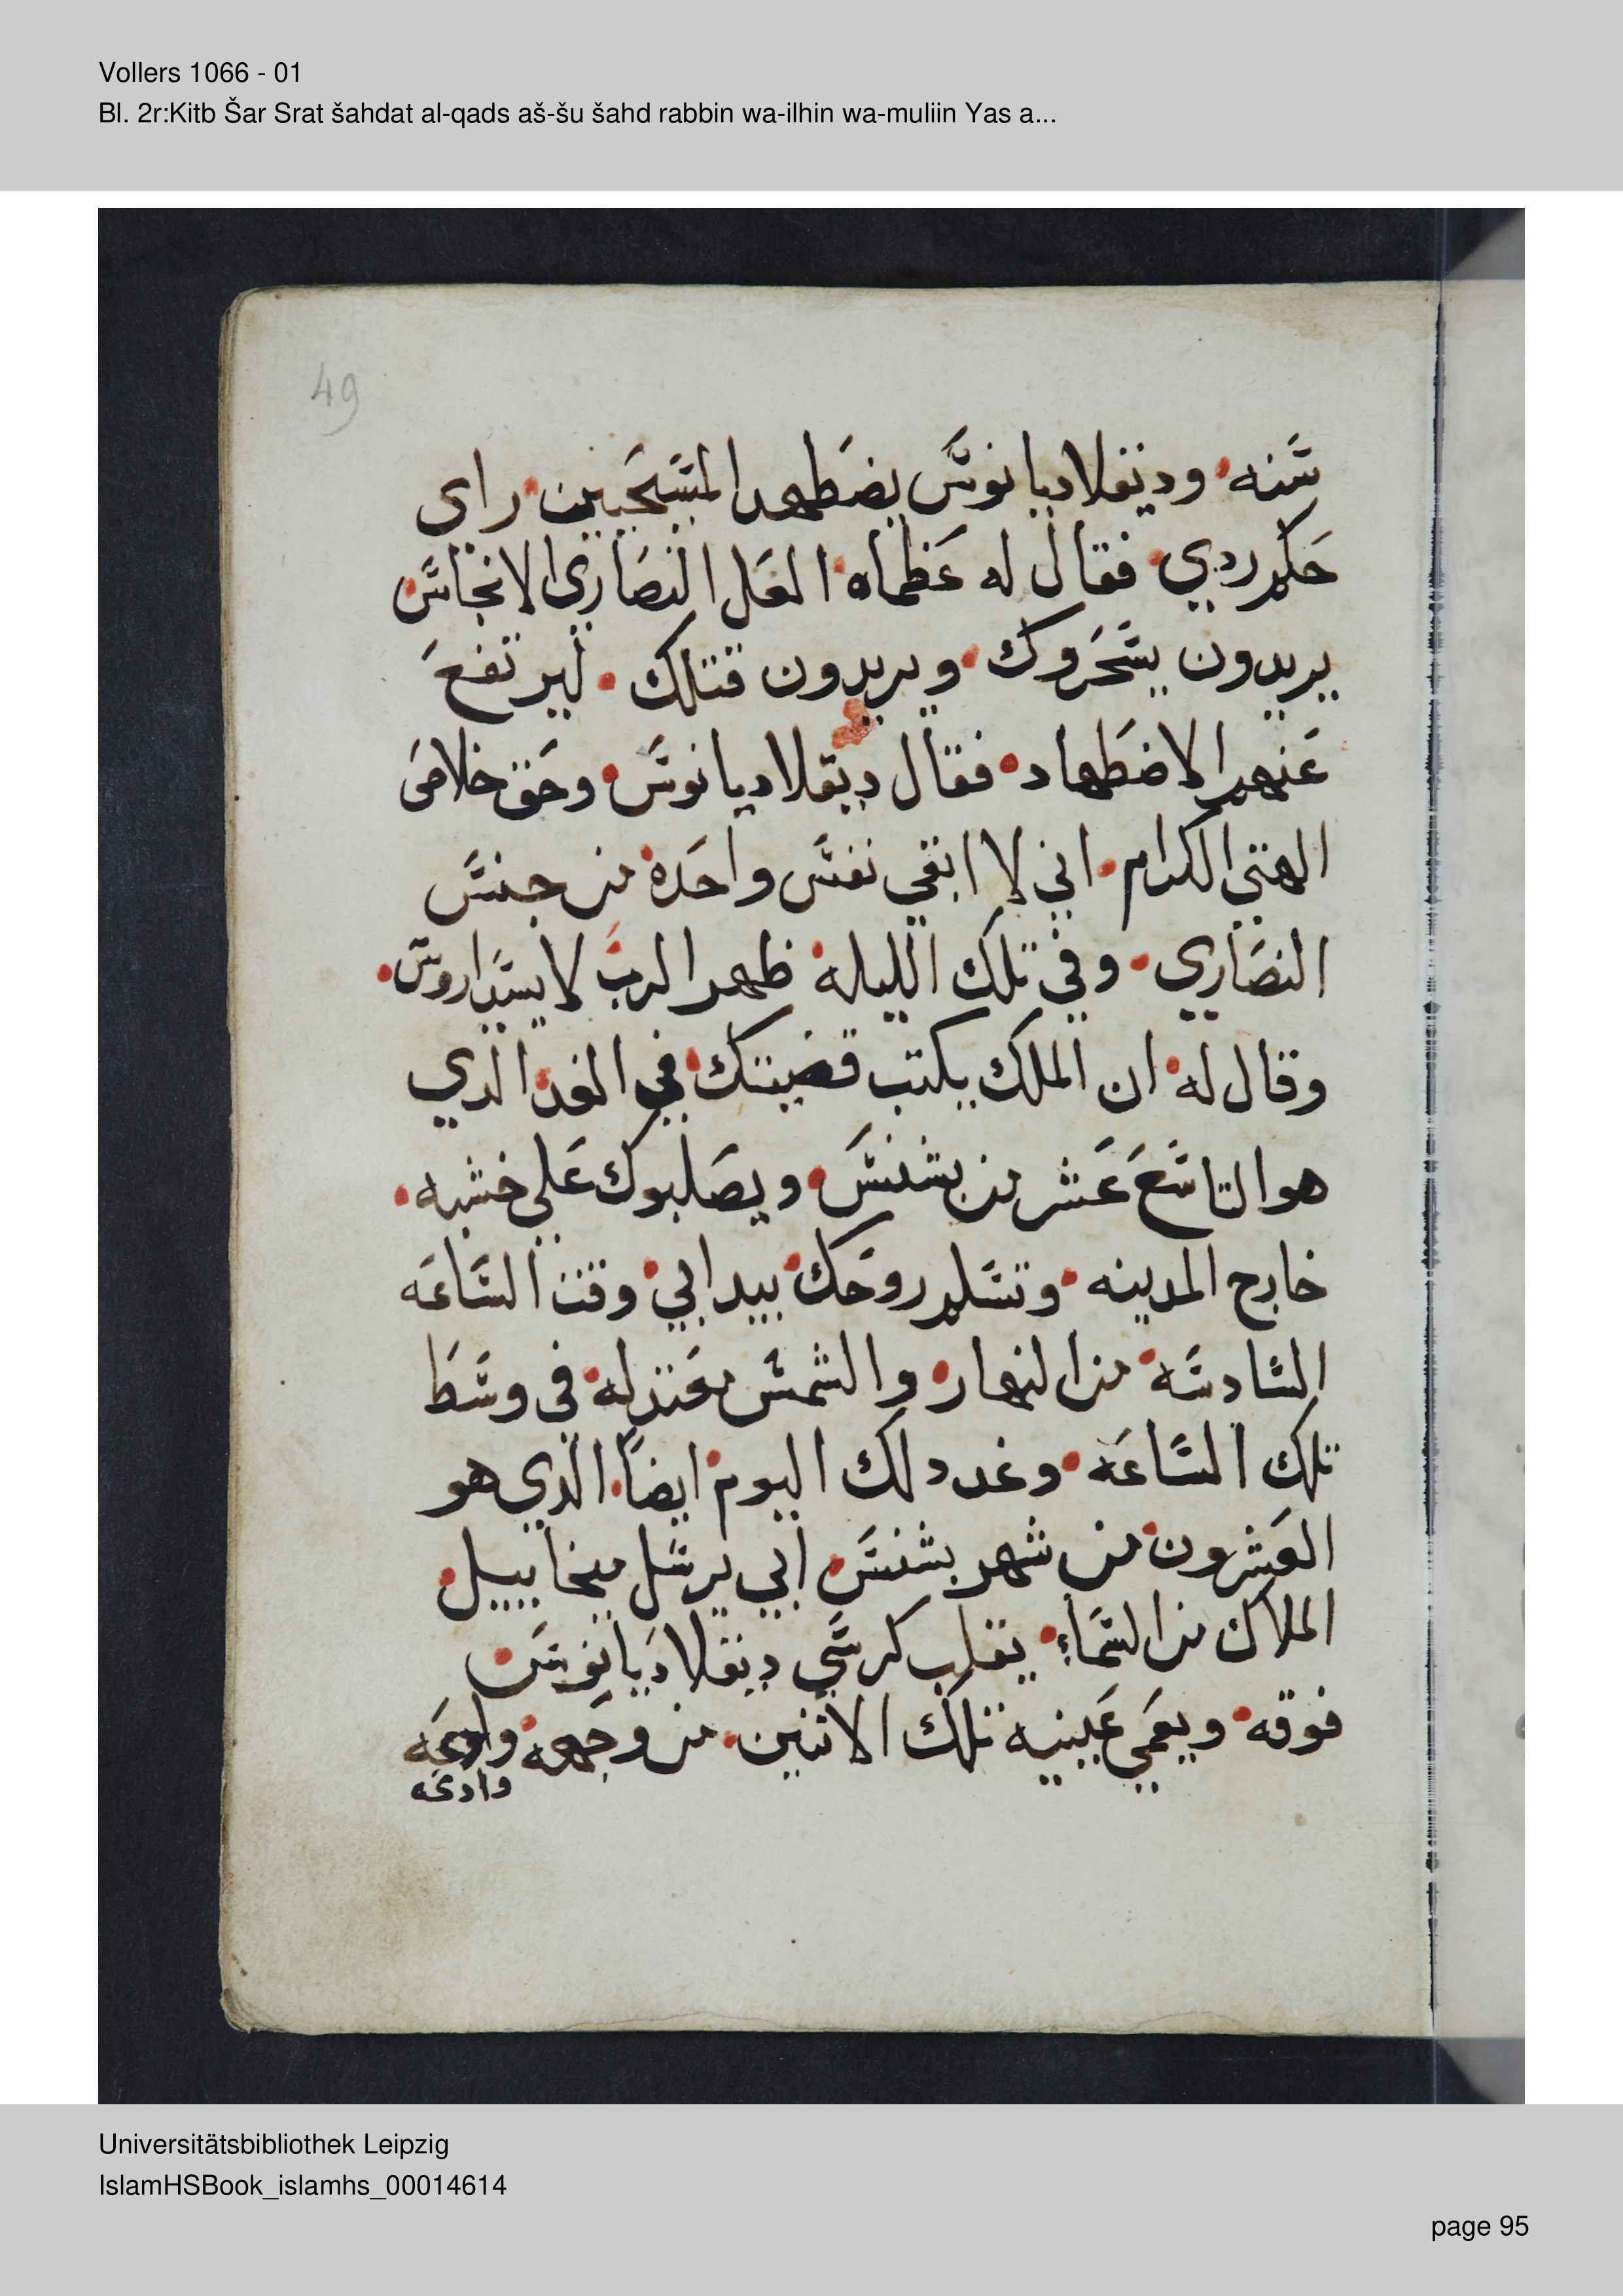 Vollers 1066 - 01
Bl. 2r:Kitb Šar Srat šahdat al-qads aš-šu šahd rabbin wa-ilhin wa-muliin Yas a...
49
سنه ودينقلاديانوس يضطهد المسيحيين راي
حلم ردي فقال له عظماه العل النصاري الانجاس
يريدون يسحروك ويريدون قتلك ليرتفع
عنهم الاضطهاد فقال ديقلاديانوس وحق خلاص
الهتي الكرام اني لا ابقي نفس واحده من جنس
النصاري وفي تلك الليله ظهر الرب لايسداروس
وقال له ان الملك يكتب قضيتك في الغد الدي
هو التاسع عشر من بشنس ويصلبوك علي خشبه
خارج المدينه وتسلم روحك بيد ابي وقت الساعه
السادسه من النهار والشمس معتدله في وسط
تلك الساعه وغد دلك اليوم ايضا الدي هو
العشرون من شهر بشنس ابي يرسل ميخاييل
الملاك من السماء يقلب كرسي ديقلاديانوس
فوقه ويعمي عينيه تلك الاتنين من وجهه وادعه
وادعه
Universitätsbibliothek Leipzig
IslamHSBook_islamhs_00014614
page 95